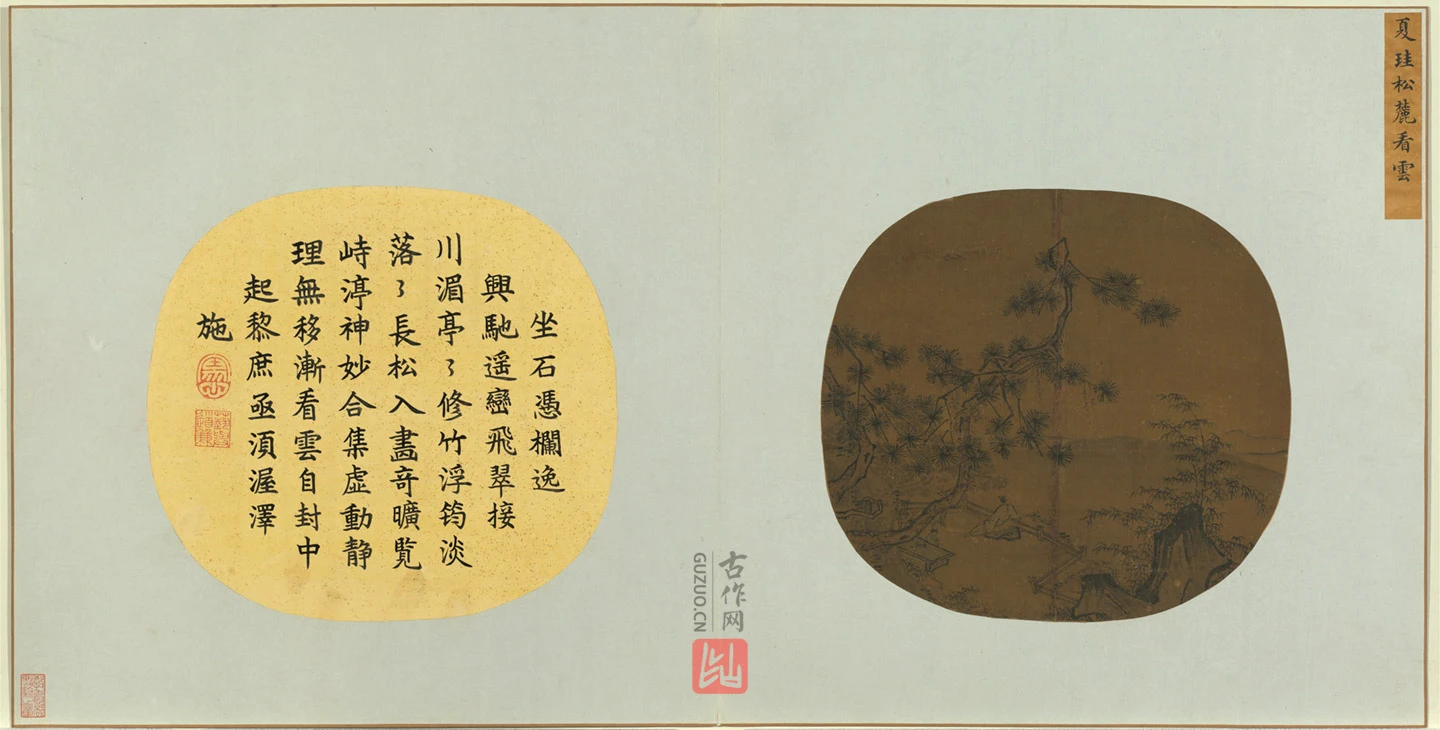 夏珪松麓看雲
坐石憑欄逸
興馳遥巒飛翠接
川湄亭〻修竹浮筠淡
落〻長松入畫奇曠覧
峙渟神妙合集虛動静
理無移漸看雲自封中
起黎庶亟湏渥澤
施
古作网
GUZUO.CN